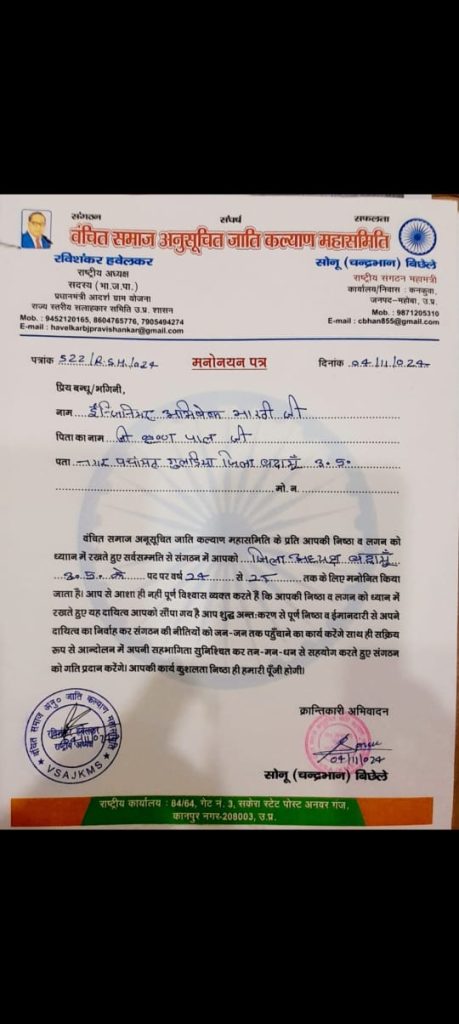 संगठन संघर्ष सफलता
वंचित समाज अनुसूचित जाति कल्याण महासमिति
रविशंकर हवेलकर
राष्ट्रीय अध्यक्ष
सदस्य (भा.ज.पा.)
प्रधानमंत्री आदर्श ग्राम योजना
राज्य स्तरीय सलाहकार समिति उ.प्र. शासन
Mob. : 9452120165, 8604765776, 7905494274
E-mail : havelkarbjpravishankar@gmail.com
सोनू (चन्द्रभान) बिछेले
राष्ट्रीय संगठन महामंत्री
कार्यालय/निवास : कनकुवा,
जनपद-महोबा, उ.प्र.
Mob. : 9871205310
E-mail : cbhan855@gmail.com
पत्रांक 522/R.S.H./024 मनोनयन पत्र दिनांक 04/11/024
प्रिय बन्धू/भगिनी,
नाम इंजिनियर अभिषेक भारती जी
पिता का नाम श्री कृष्ण पाल जी
पता नगर पंचायत गुलड़िया जिला बदायूँ उ.प्र.
मो. न.
वंचित समाज अनूसूचित जाति कल्याण महासमिति के प्रति आपकी निष्ठा व लगन को
ध्यान में रखते हुए सर्वसम्मति से संगठन में आपको जिला अध्यक्ष बदायूँ
उ.प्र. के पद पर वर्ष 24 से 25 तक के लिए मनोनित किया
जाता है। आप से आशा ही नहीं पूर्ण विश्वास व्यक्त करते हैं कि आपकी निष्ठा व लगन को ध्यान में
रखते हुए यह दायित्व आपको सौंपा गय है आप शुद्ध अन्तःकरण से पूर्ण निष्ठा व ईमानदारी से अपने
दायित्व का निर्वाह कर संगठन की नीतियों को जन-जन तक पहुँचाने का कार्य करेंगे साथ ही सक्रिय
रूप से आन्दोलन में अपनी सहभागिता सुनिश्चित कर तन-मन-धन से सहयोग करते हुए संगठन
को गति प्रदान करेंगे। आपकी कार्य कुशलता निष्ठा ही हमारी पूँजी होगी।
वंचित समाज अनु० जाति कल्याण महासमिति
राष्ट्रीय अध्यक्ष
04/11/024
VSAJKMS
क्रान्तिकारी अभिवादन
04/11/024
सोनू (चन्द्रभान) बिछेले
राष्ट्रीय कार्यालय : 84/64, गेट नं. 3, सकेरा स्टेट पोस्ट अनवर गंज,
कानपुर नगर-208003, उ.प्र.